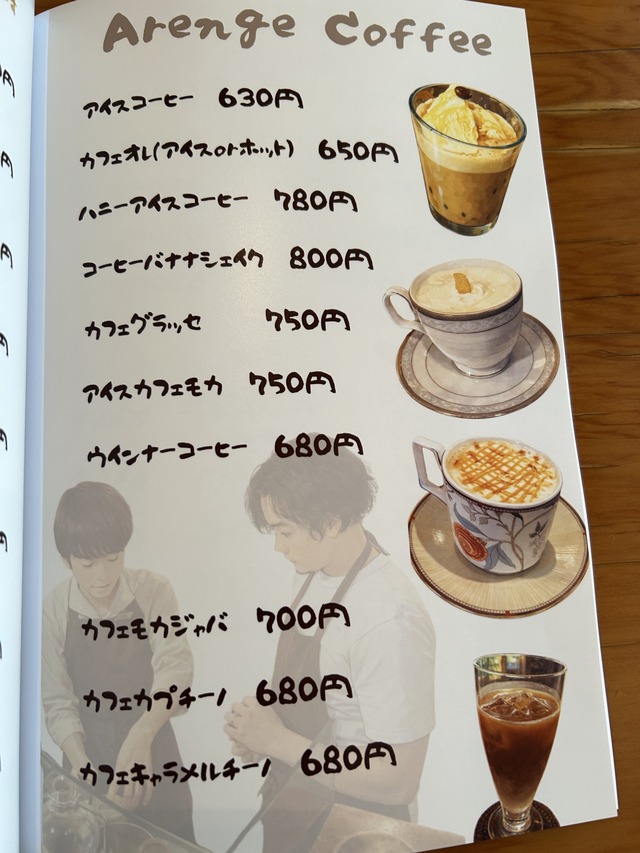 Arenge Coffee
アイスコーヒー 630円
カフェオレ(アイスorホット) 650円
ハニーアイスコーヒー 780円
コーヒーバナナシェイク 800円
カフェグラッセ 750円
アイスカフェモカ 750円
ウインナーコーヒー 680円
カフェモカジャバ 700円
カフェカプチーノ 680円
カフェキャラメルチーノ 680円